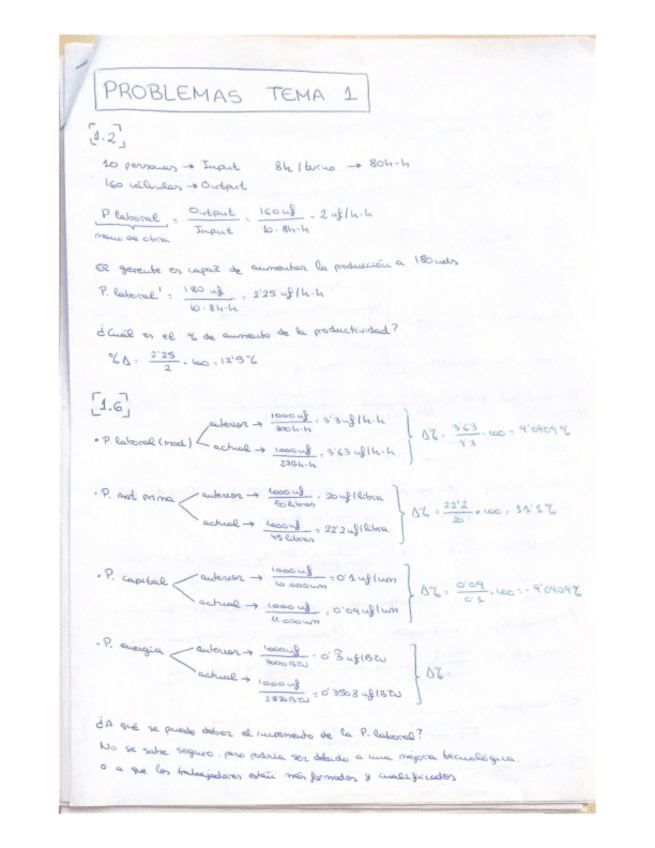 PROBLEMAS TEMA 1
[1.2]
10 personas → Input 8h/turno → 80h-h
160 válvulas → Output
P. laboral = Output / Input = 160 uf / 10 · 8h-h = 2 uf/h-h
mano de obra
El gerente es capaz de aumentar la producción a 180 uds
P. laboral' = 180 uf / 10 · 8h-h = 2'25 uf/h-h
¿Cuál es el % de aumento de la productividad?
%Δ = 2'25 / 2 · 100 = 12'5%
[1.6]
• P. laboral (mod) anterior → 1000 uf / 300 h-h = 3'3 uf/h-h
actual → 1000 uf / 275 h-h = 3'63 uf/h-h
Δ% = 3'63 / 3'3 · 100 = 9'0909%
• P. mat prima anterior → 1000 uf / 50 libras = 20 uf/libra
actual → 1000 uf / 45 libras = 22'2 uf/libra
Δ% = 22'2 / 20 · 100 = 11'1%
• P. capital anterior → 1000 uf / 10.000 um = 0'1 uf/um
actual → 1000 uf / 11.000 um = 0'09 uf/um
Δ% = 0'09 / 0'1 · 100 = -9'0909%
• P. energia anterior → 1000 uf / 3000 BTU = 0'3 uf/BTU
actual → 1000 uf / BTU = 0'3503 uf/BTU
Δ% =
¿A qué se puede deber el incremento de la P. laboral?
No se sabe seguro, pero podría ser debido a una mejora tecnológica
o a que los trabajadores estén más formados y cualificados